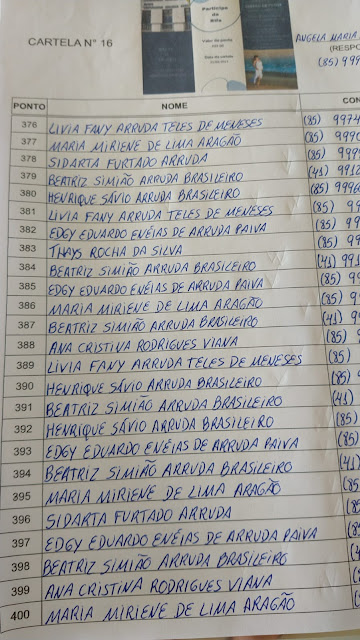 CARTELA N° 16
Participe da Rifa
ANGELA MARIA
(RESPO
(85) 999
PONTO NOME CON
376 LIVIA FANY ARRUDA TELES DE MENESES (85) 9974
377 MARIA MIRIENE DE LIMA ARAGÃO (85) 9990
378 SIDARTA FURTADO ARRUDA (85) 9999
379 BEATRIZ SIMIÃO ARRUDA BRASILEIRO (41) 9912
380 HENRIQUE SÁVIO ARRUDA BRASILEIRO (85) 9996
381 LIVIA FANY ARRUDA TELES DE MENESES (85) 997
382 EDGY EDUARDO ENÉIAS DE ARRUDA PAIVA (85) 99
383 THAYS ROCHA DA SILVA (85) 99
384 BEATRIZ SIMIÃO ARRUDA BRASILEIRO (41) 991
385 EDGY EDUARDO ENÉIAS DE ARRUDA PAIVA (85) 99
386 MARIA MIRIENE DE LIMA ARAGÃO (85) 99
387 BEATRIZ SIMIÃO ARRUDA BRASILEIRO (41) 99
388 ANA CRISTINA RODRIGUES VIANA (85) 9
389 LIVIA FANY ARRUDA TELES DE MENESES (85)
390 HENRIQUE SÁVIO ARRUDA BRASILEIRO (85)
391 BEATRIZ SIMIÃO ARRUDA BRASILEIRO (41)
392 HENRIQUE SÁVIO ARRUDA BRASILEIRO (85)
393 EDGY EDUARDO ENÉIAS DE ARRUDA PAIVA (85)
394 BEATRIZ SIMIÃO ARRUDA BRASILEIRO (41)
395 MARIA MIRIENE DE LIMA ARAGÃO (85
396 SIDARTA FURTADO ARRUDA (85
397 EDGY EDUARDO ENÉIAS DE ARRUDA PAIVA (85
398 BEATRIZ SIMIÃO ARRUDA BRASILEIRO (4
399 ANA CRISTINA RODRIGUES VIANA (8
400 MARIA MIRIENE DE LIMA ARAGÃO (